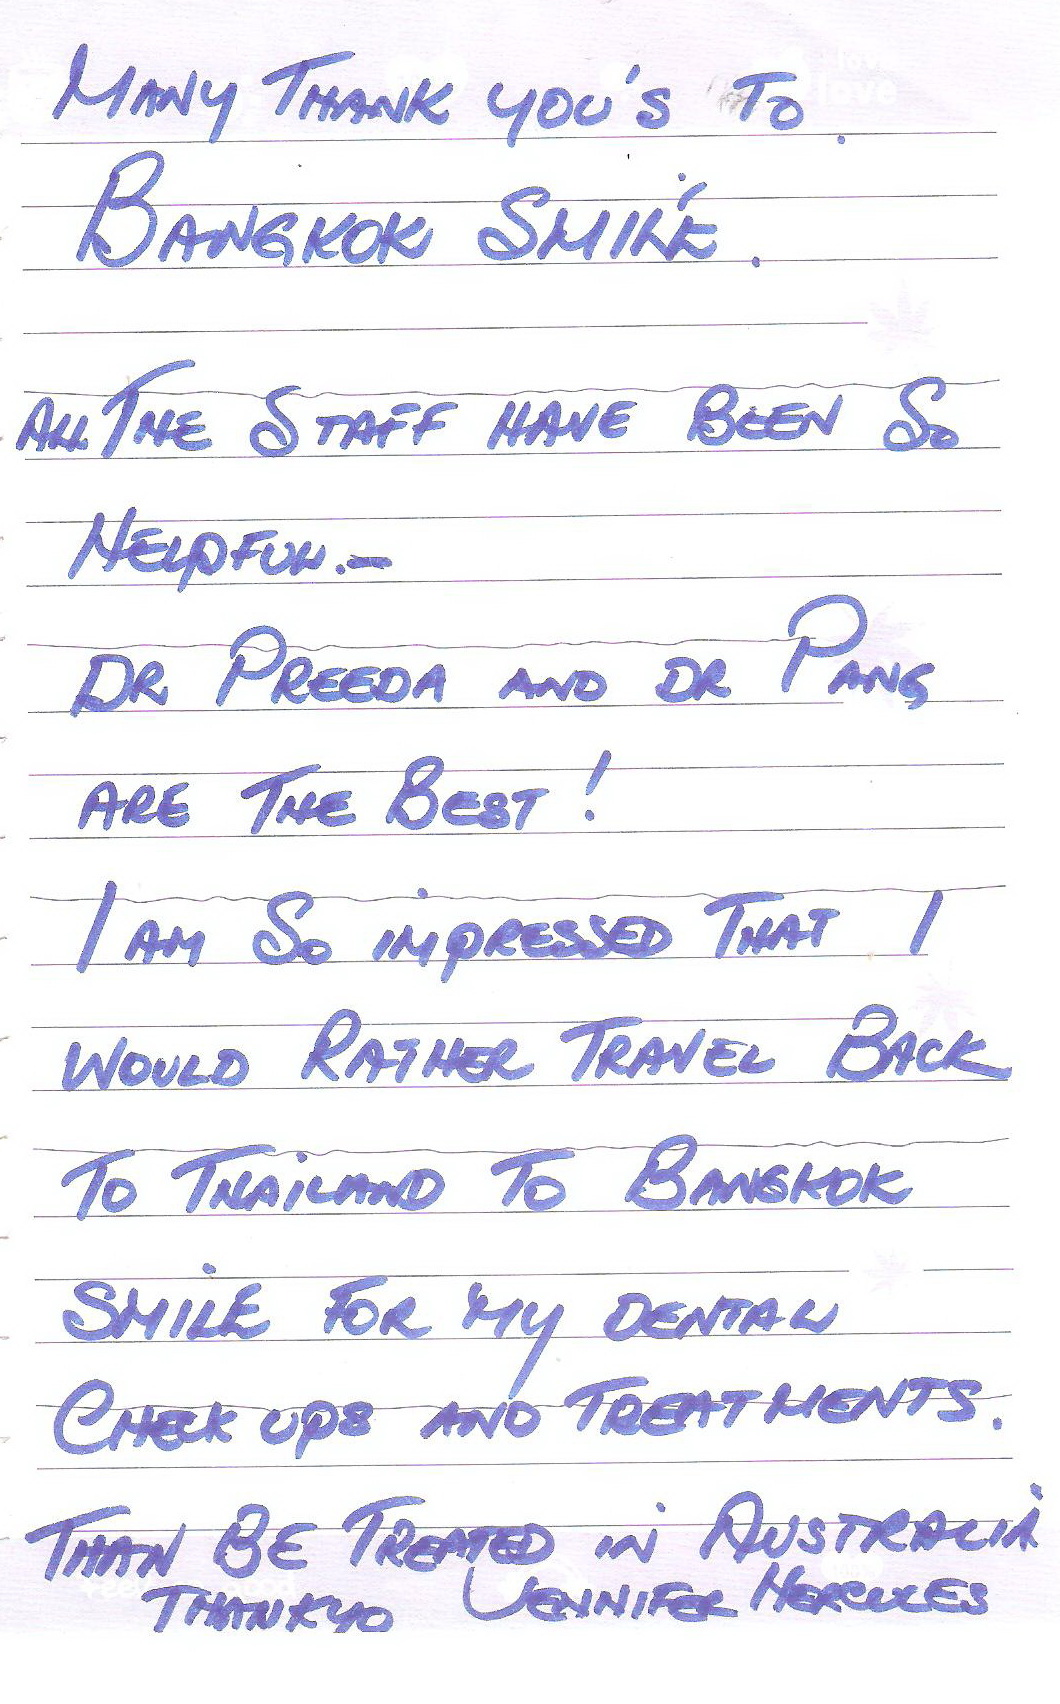 MANY THANK YOU'S TO.
BANGKOK SMILE.
ALL THE STAFF HAVE BEEN SO
HELPFUL.-
DR PREEDA AND DR PANG
ARE THE BEST!
I AM SO IMPRESSED THAT I
WOULD RATHER TRAVEL BACK
TO THAILAND TO BANGKOK
SMILE FOR MY DENTAL
CHECK UPS AND TREATMENTS.
THAN BE TREATED IN AUSTRALIA
THANKYO JENNIFER HERCULES